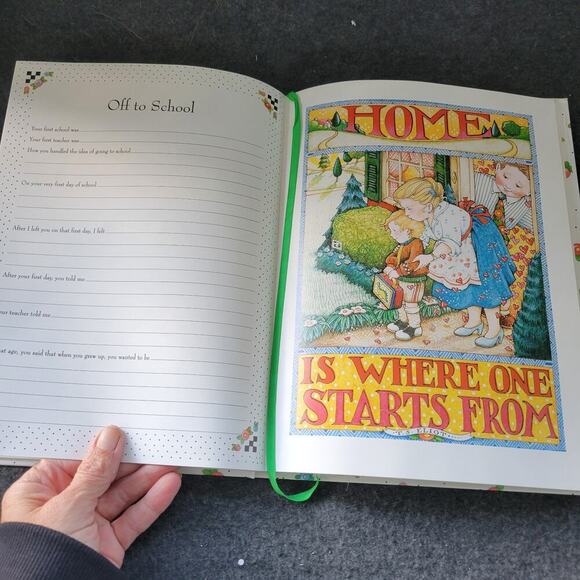 Off to School
Your first school was
Your first teacher was
How you handled the idea of going to school
On your very first day of school
After I left you on that first day, I felt
After your first day, you told me
our teacher told me
at age, you said that when you grew up, you wanted to be
HOME
IS WHERE ONE
STARTS FROM
T.S. ELIOT